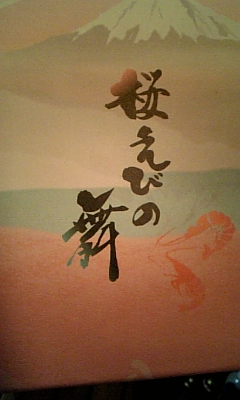 桜えびの
舞